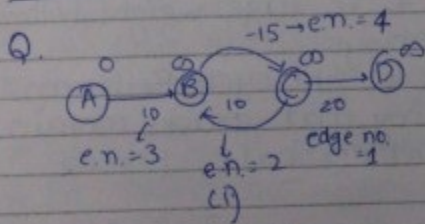 -15 → e.n. = 4
Q.
0 ∞ ∞ ∞
A B C D
10 10 20
e.n. = 3 e.n. = 2 edge no. = 1
(1)